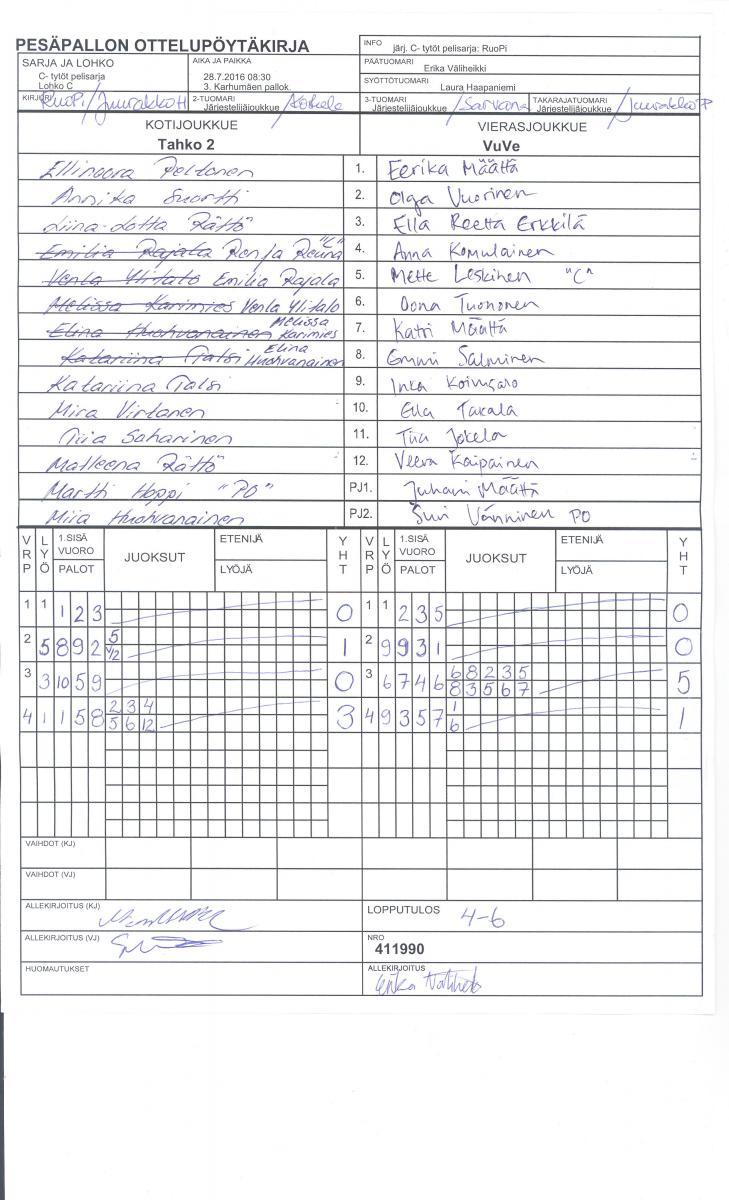 PESÄPALLON OTTELUPÖYTÄKIRJA
INFO järj. C- tytöt pelisarja: RuoPi
SARJA JA LOHKO
C- tytöt pelisarja
Lohko C
AIKA JA PAIKKA
28.7.2016 08:30
3. Karhumäen pallok.
PÄÄTUOMARI
Erika Väliheikki
SYÖTTÖTUOMARI
Laura Haapaniemi
KIRJURI RuoPi/Juurakko H
2-TUOMARI
Järjestelijäjoukkue /Kokele
3-TUOMARI
Järjestelijäjoukkue /Sarvana
TAKARAJATUOMARI
Järjestelijäjoukkue /Juurakko P
KOTIJOUKKUE
Tahko 2
VIERASJOUKKUE
VuVe
Ellinoora Peltonen 1. Eerika Määttä
Annika Suortti 2. Olga Vuorinen
Liina-Lotta Rättö 3. Ella Reetta Erkkilä
Emilia Rajala Ronja Reuna "C" 4. Anna Komulainen
Venla Ylitalo Emilia Rajala 5. Mette Leskinen "C"
Melissa Karimies Venla Ylitalo 6. Oona Tuononen
Elina Huohvanainen Melissa Karimies 7. Katri Määttä
Katariina Talsi Elina Huohvanainen 8. Emmi Salminen
Katariina Talsi 9. Inka
Mira Virtanen 10. Ella Takala
Tiia Saharinen 11. Tiia Jokela
Matleena Rättö 12. Veera Kaipainen
Martti Hoppi "PO" PJ1. Juhani Määttä
Miia Huohvanainen PJ2. Suvi Vänninen PO
VRP LYÖ 1.SISÄ VUORO PALOT JUOKSUT ETENIJÄ LYÖJÄ YHT VRP LYÖ 1.SISÄ VUORO PALOT JUOKSUT ETENIJÄ LYÖJÄ YHT
1 1 1 2 3 0 1 1 2 3 5 0
2 5 8 9 2 5 V/2 1 2 9 9 3 1 0
3 3 10 5 9 0 3 6 7 4 6 6 8 2 3 5 5
8 3 5 6 7
4 1 1 5 8 2 3 4 3 4 9 3 5 7 1 1
5 6 12 6
VAIHDOT (KJ)
VAIHDOT (VJ)
ALLEKIRJOITUS (KJ)
LOPPUTULOS 4-6
ALLEKIRJOITUS (VJ)
NRO
411990
HUOMAUTUKSET
ALLEKIRJOITUS
Erika